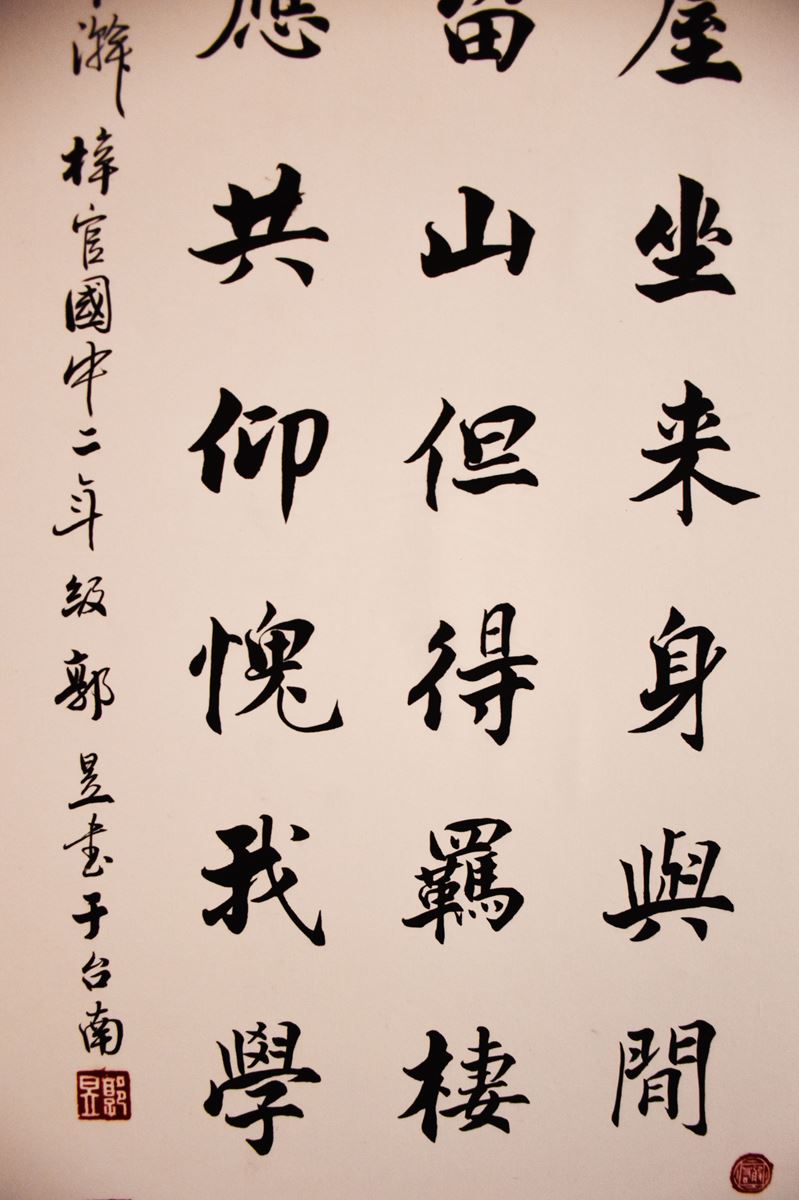 屋坐来身與閒
留山但得羈棲
應共仰愧我學
梓官國中二年級郭昱書于台南
郭昱